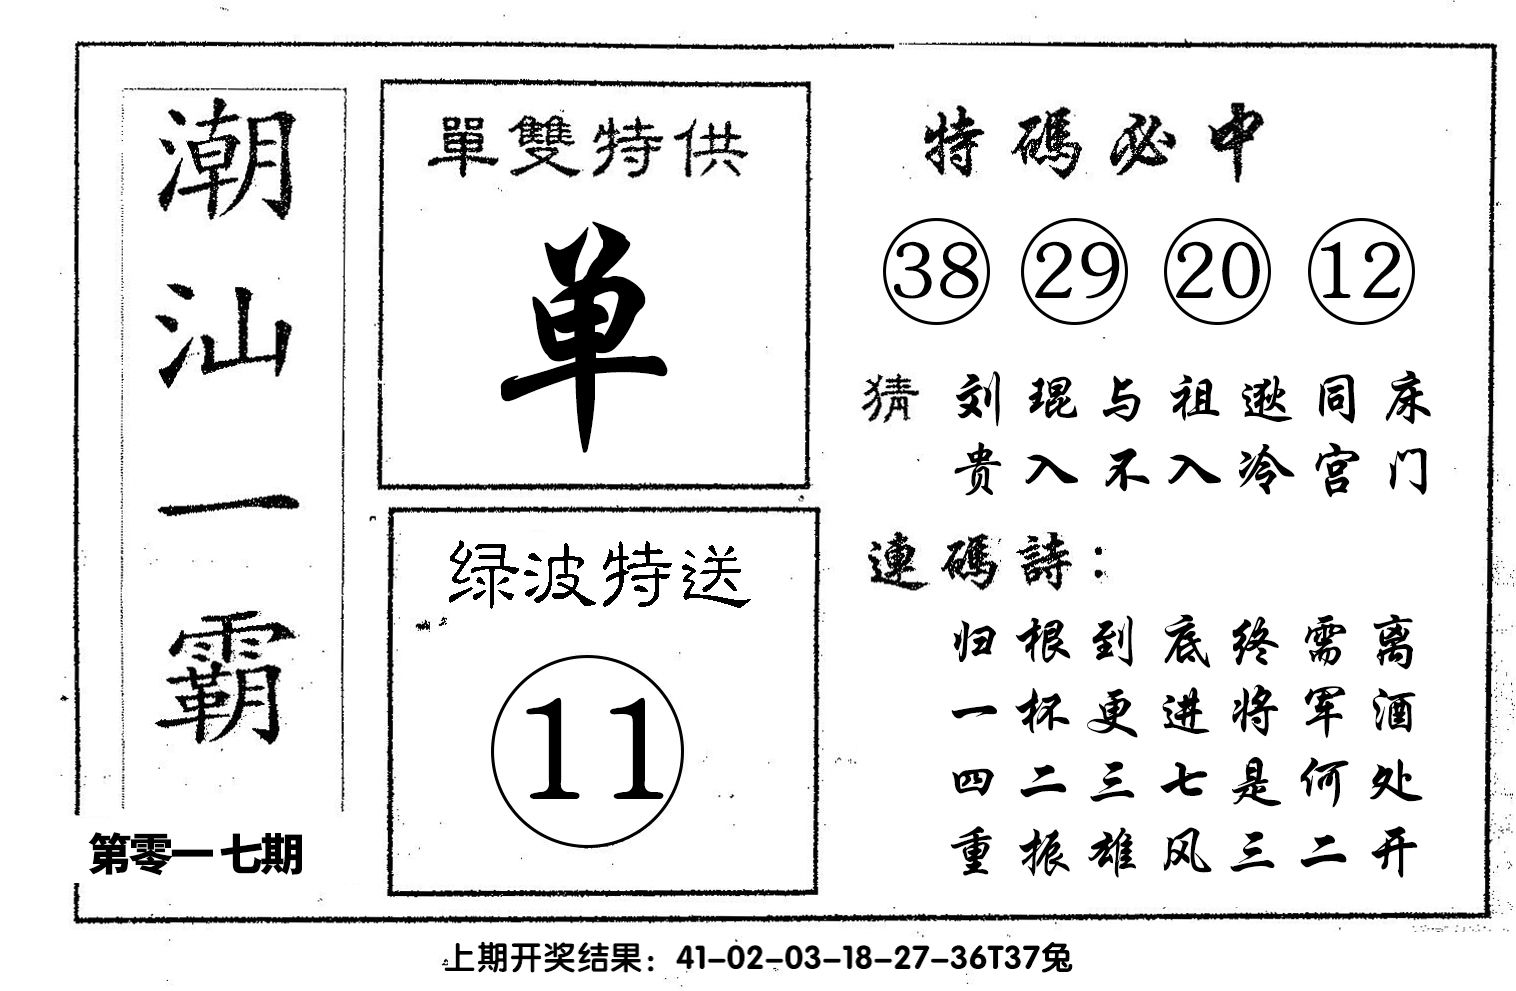 潮汕一霸
第零一七期
單雙特供
单
绿波特送
11
特碼必中
38 29 20 12
猜 刘琨与祖逖同床
贵人不入冷宫门
連碼詩：
归根到底终需离
一杯更进将军酒
四二三七是何处
重振雄风三二开
上期开奖结果：41-02-03-18-27-36T37兔